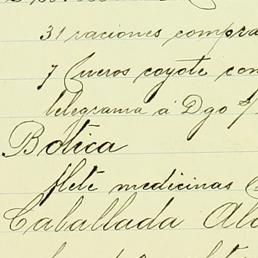 31 raciones compra
7 Cueros coyote con
telegrama á Dgo
Botica
flete medicinas
Caballada